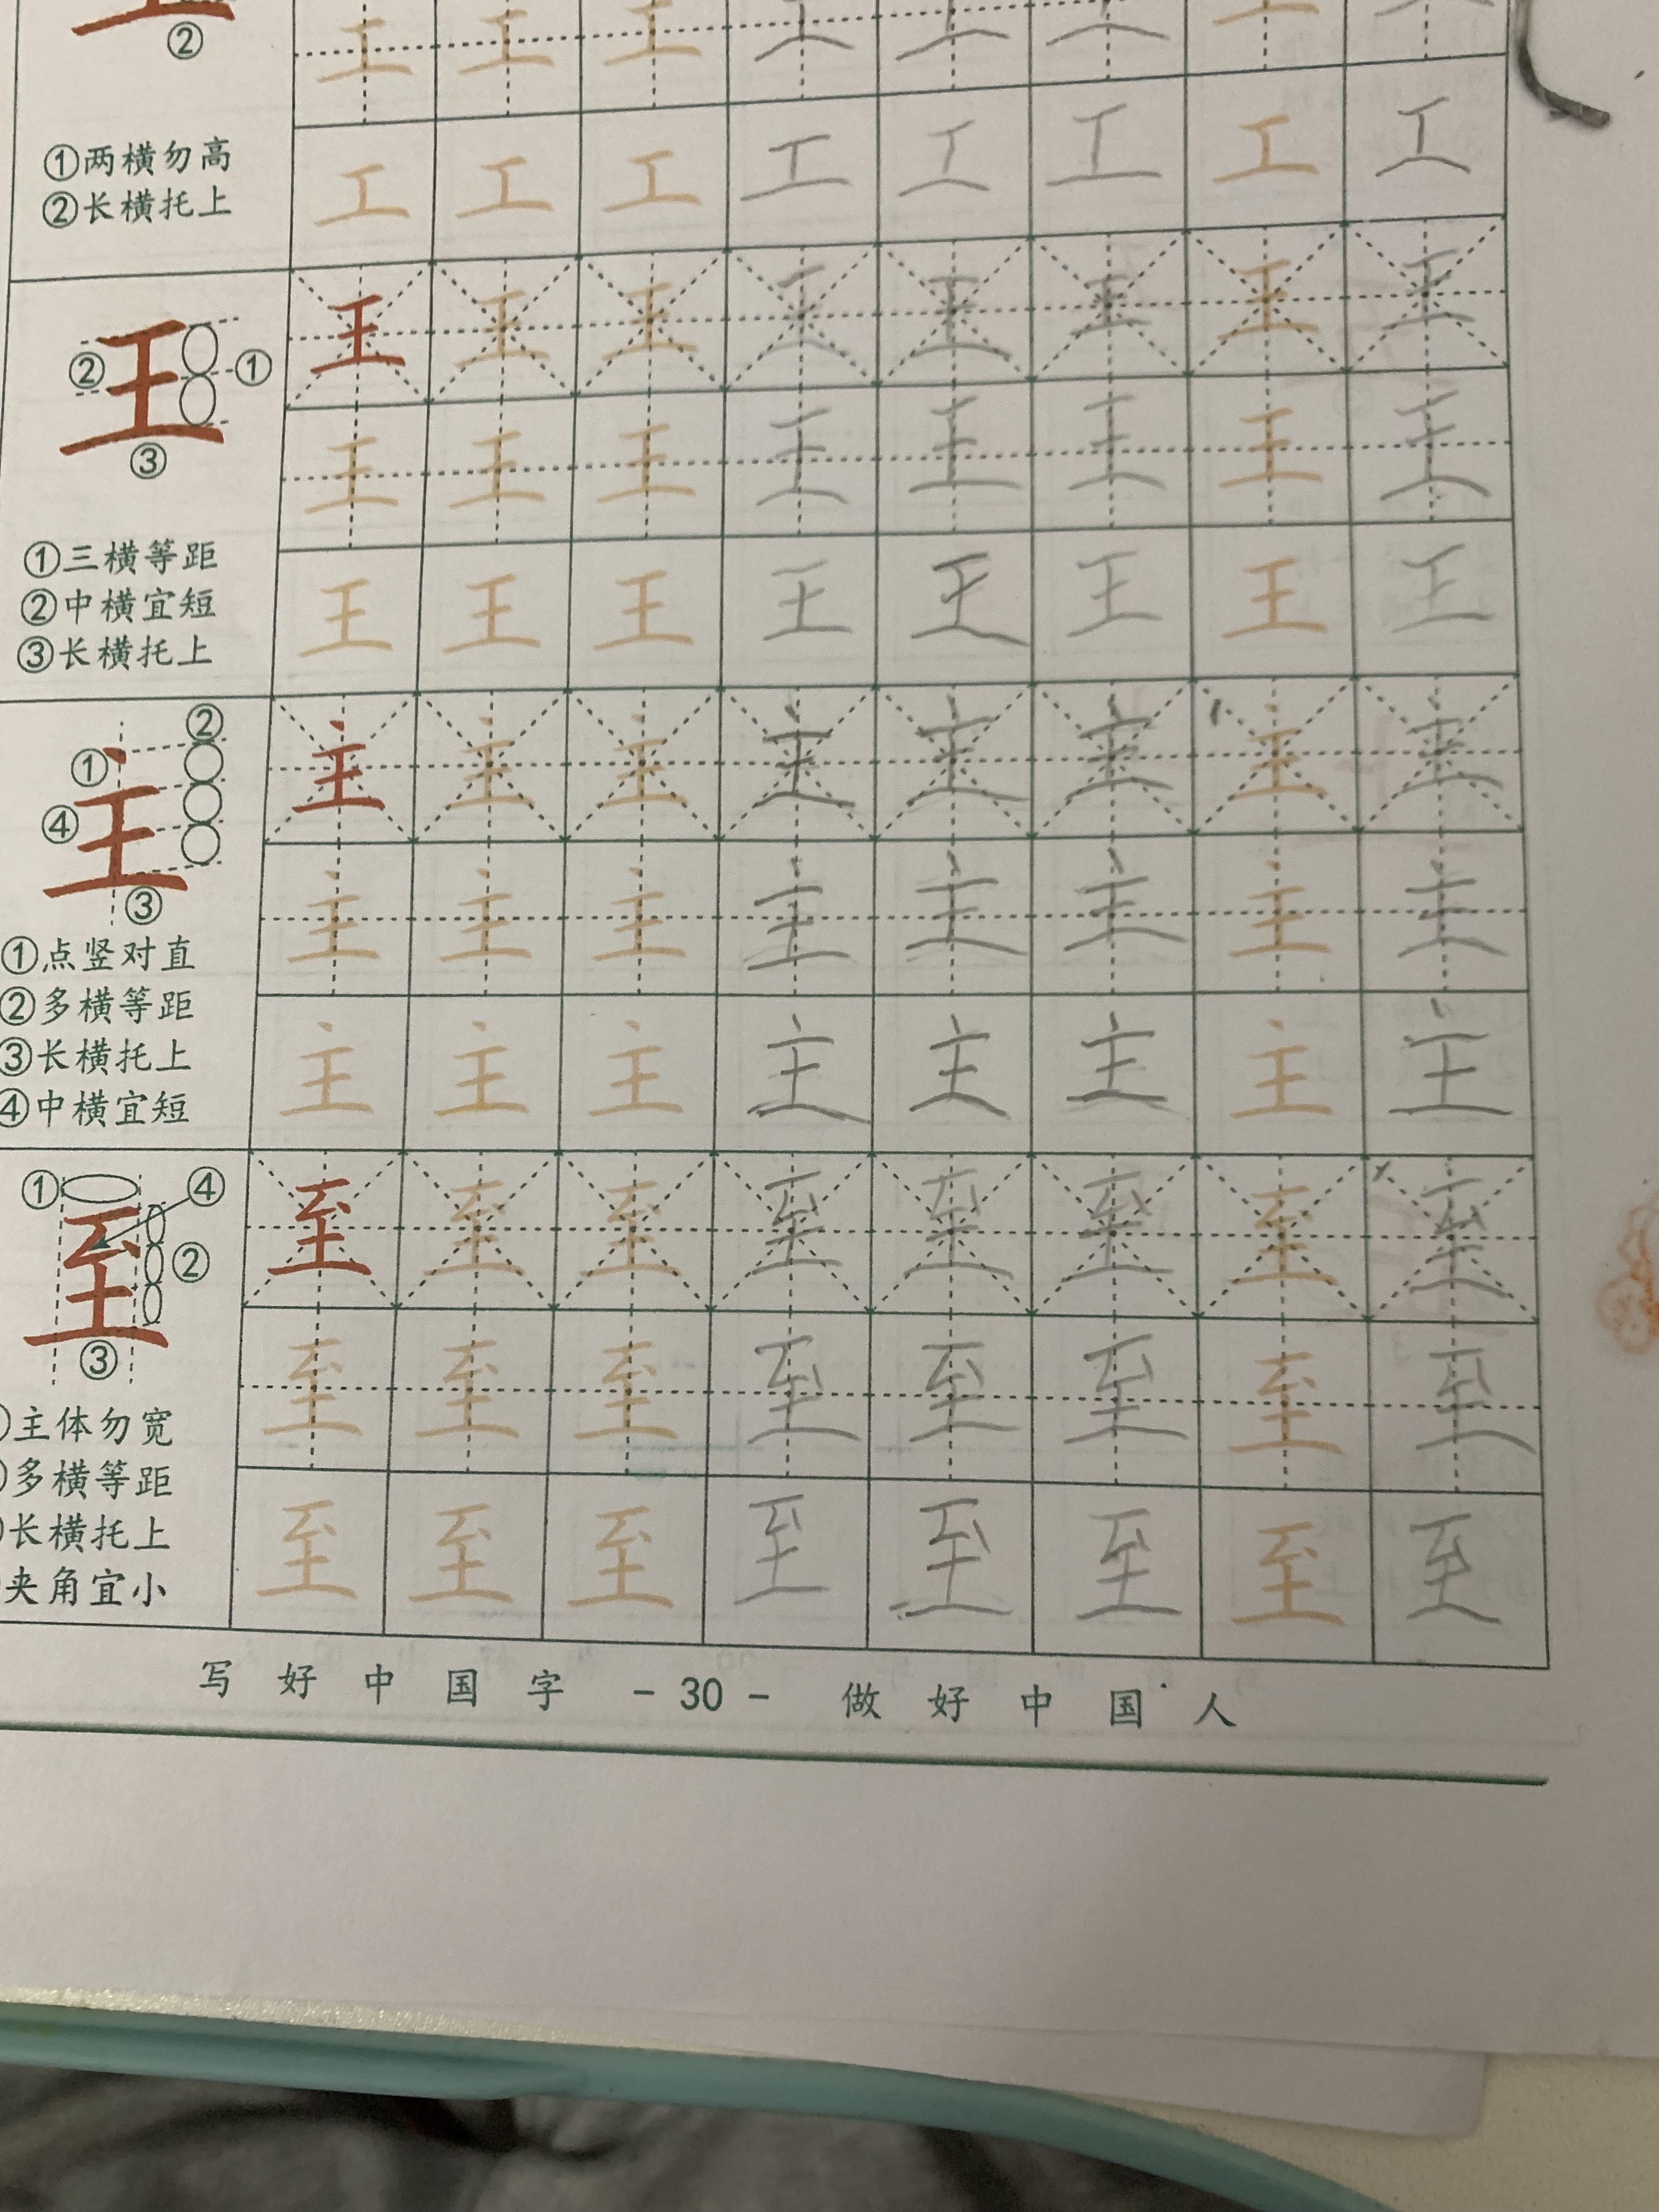 ②
工 工 工 工 工 工 工 工
①两横勿高
②长横托上
工 工 工 工 工 工 工 工
王 王 王 王 王 王 王 王 王
② ① ③
王 王 王 王 王 王 王 王
①三横等距
②中横宜短
③长横托上
王 王 王 王 王 王 王 王
主 主 主 主 主 主 主 主 主
① ② ④ ③
主 主 主 主 主 主 主 主
①点竖对直
②多横等距
③长横托上
④中横宜短
主 主 主 主 主 主 主 主
至 至 至 至 至 至 至 至 至
① ④ ② ③
至 至 至 至 至 至 至 至
主体勿宽
多横等距
长横托上
夹角宜小
至 至 至 至 至 至 至 至
写好中国字 - 30 - 做好中国人